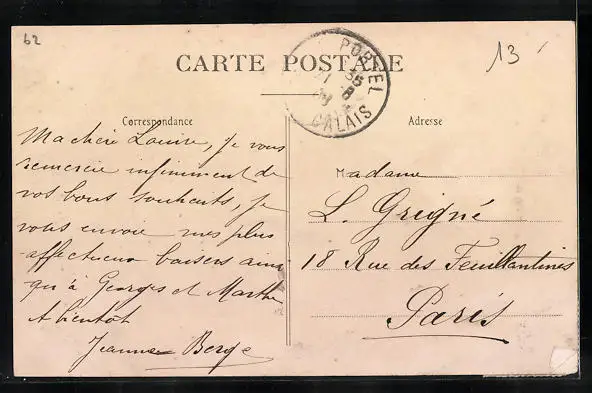 62
13
CARTE POSTALE
PORTEL
CALAIS
Correspondance
Adresse
Ma chère Louise, je vous
remercie infiniment de
vos bons souhaits, je
vous envoie mes plus
affectueux baisers ainsi
qu'à Georges et Marthe
A bientôt
Jeanne Berge
Madame
L. Grigné
18 Rue des Feuillantines
Paris